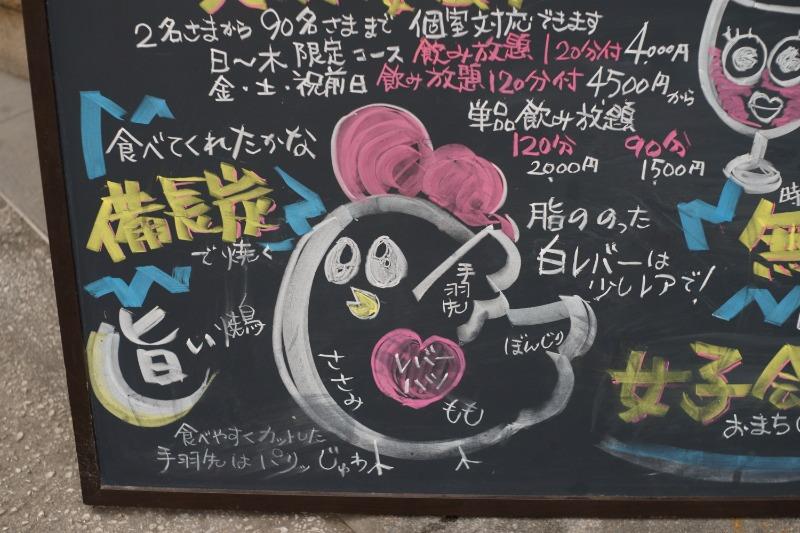 2名さまから90名さままで 個室対応できます
日〜木 限定コース 飲み放題120分付4000円
金・土・祝前日 飲み放題120分付4500円から
単品飲み放題
120分 90分
2000円 1500円
食べてくれたかな
備長炭
で焼く
旨い焼鳥
脂ののった
白レバーは
少しレアで!
手羽先
ぼんじり
ささみ
レバー
ハツ
もも
食べやすくカットした
手羽先はパリッじゅわ
時
無
女子会
おまち